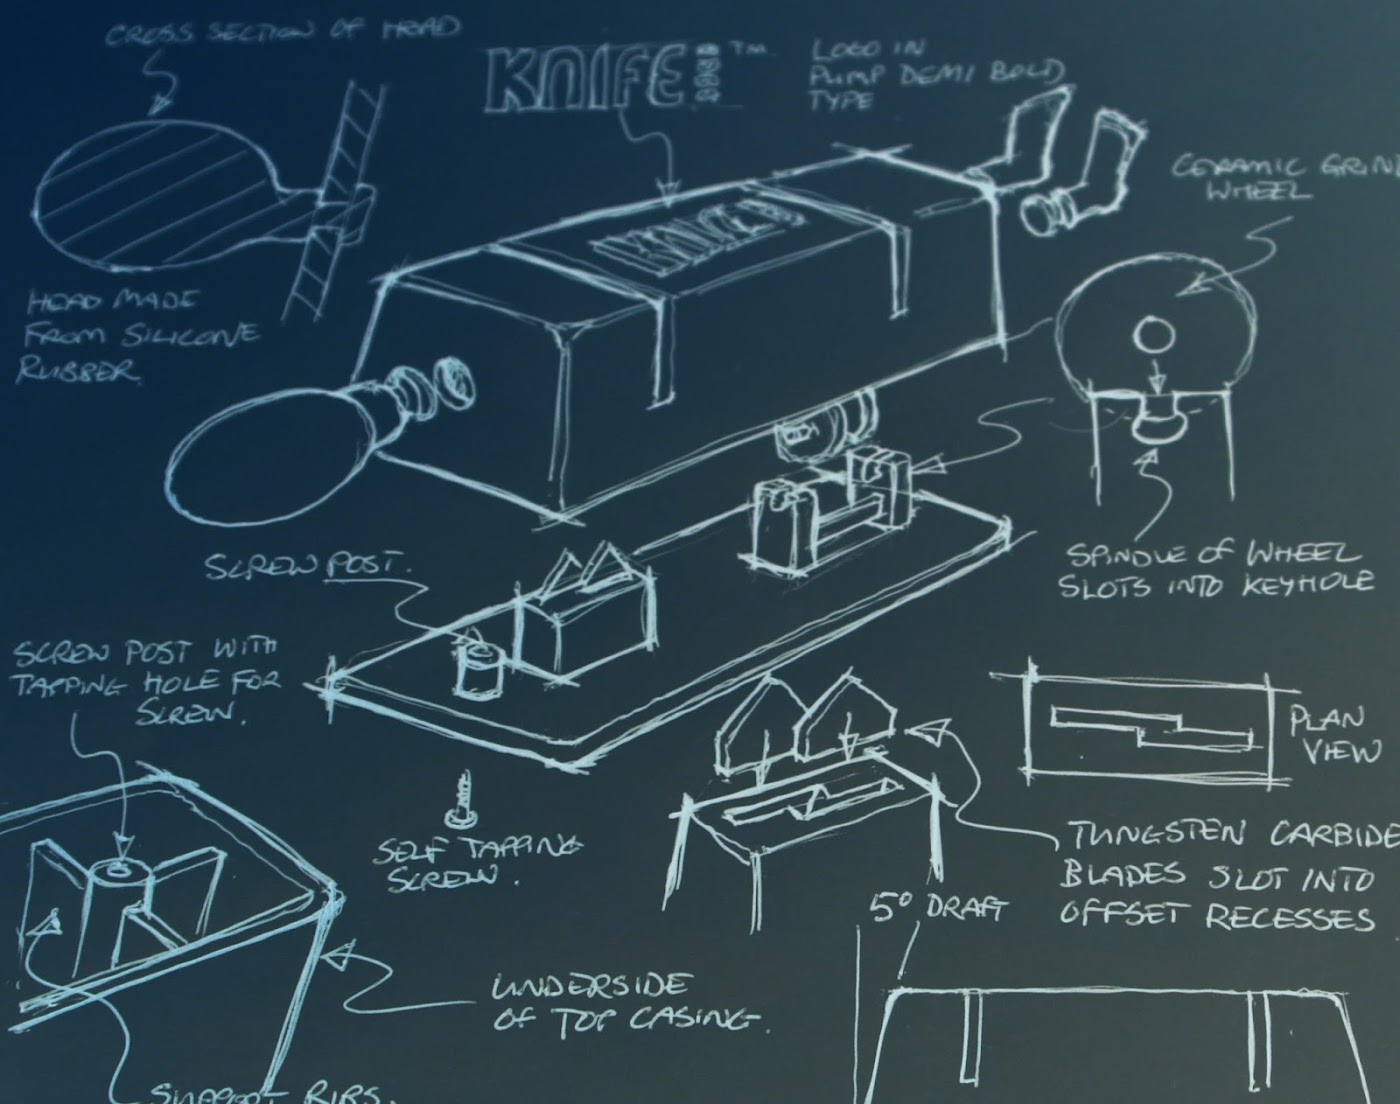 CROSS SECTION OF HEAD
KNIFE
TM
LOGO IN
PUMP DEMI BOLD
TYPE
CERAMIC GRIN
WHEEL
HEAD MADE
FROM SILICONE
RUBBER.
SCREW POST.
SPINDLE OF WHEEL
SLOTS INTO KEYHOLE
SCREW POST WITH
TAPPING HOLE FOR
SCREW.
PLAN
VIEW
SELF TAPPING
SCREW.
TUNGSTEN CARBIDE
BLADES SLOT INTO
OFFSET RECESSES
5° DRAFT
UNDERSIDE
OF TOP CASING.
SUPPORT RIBS.